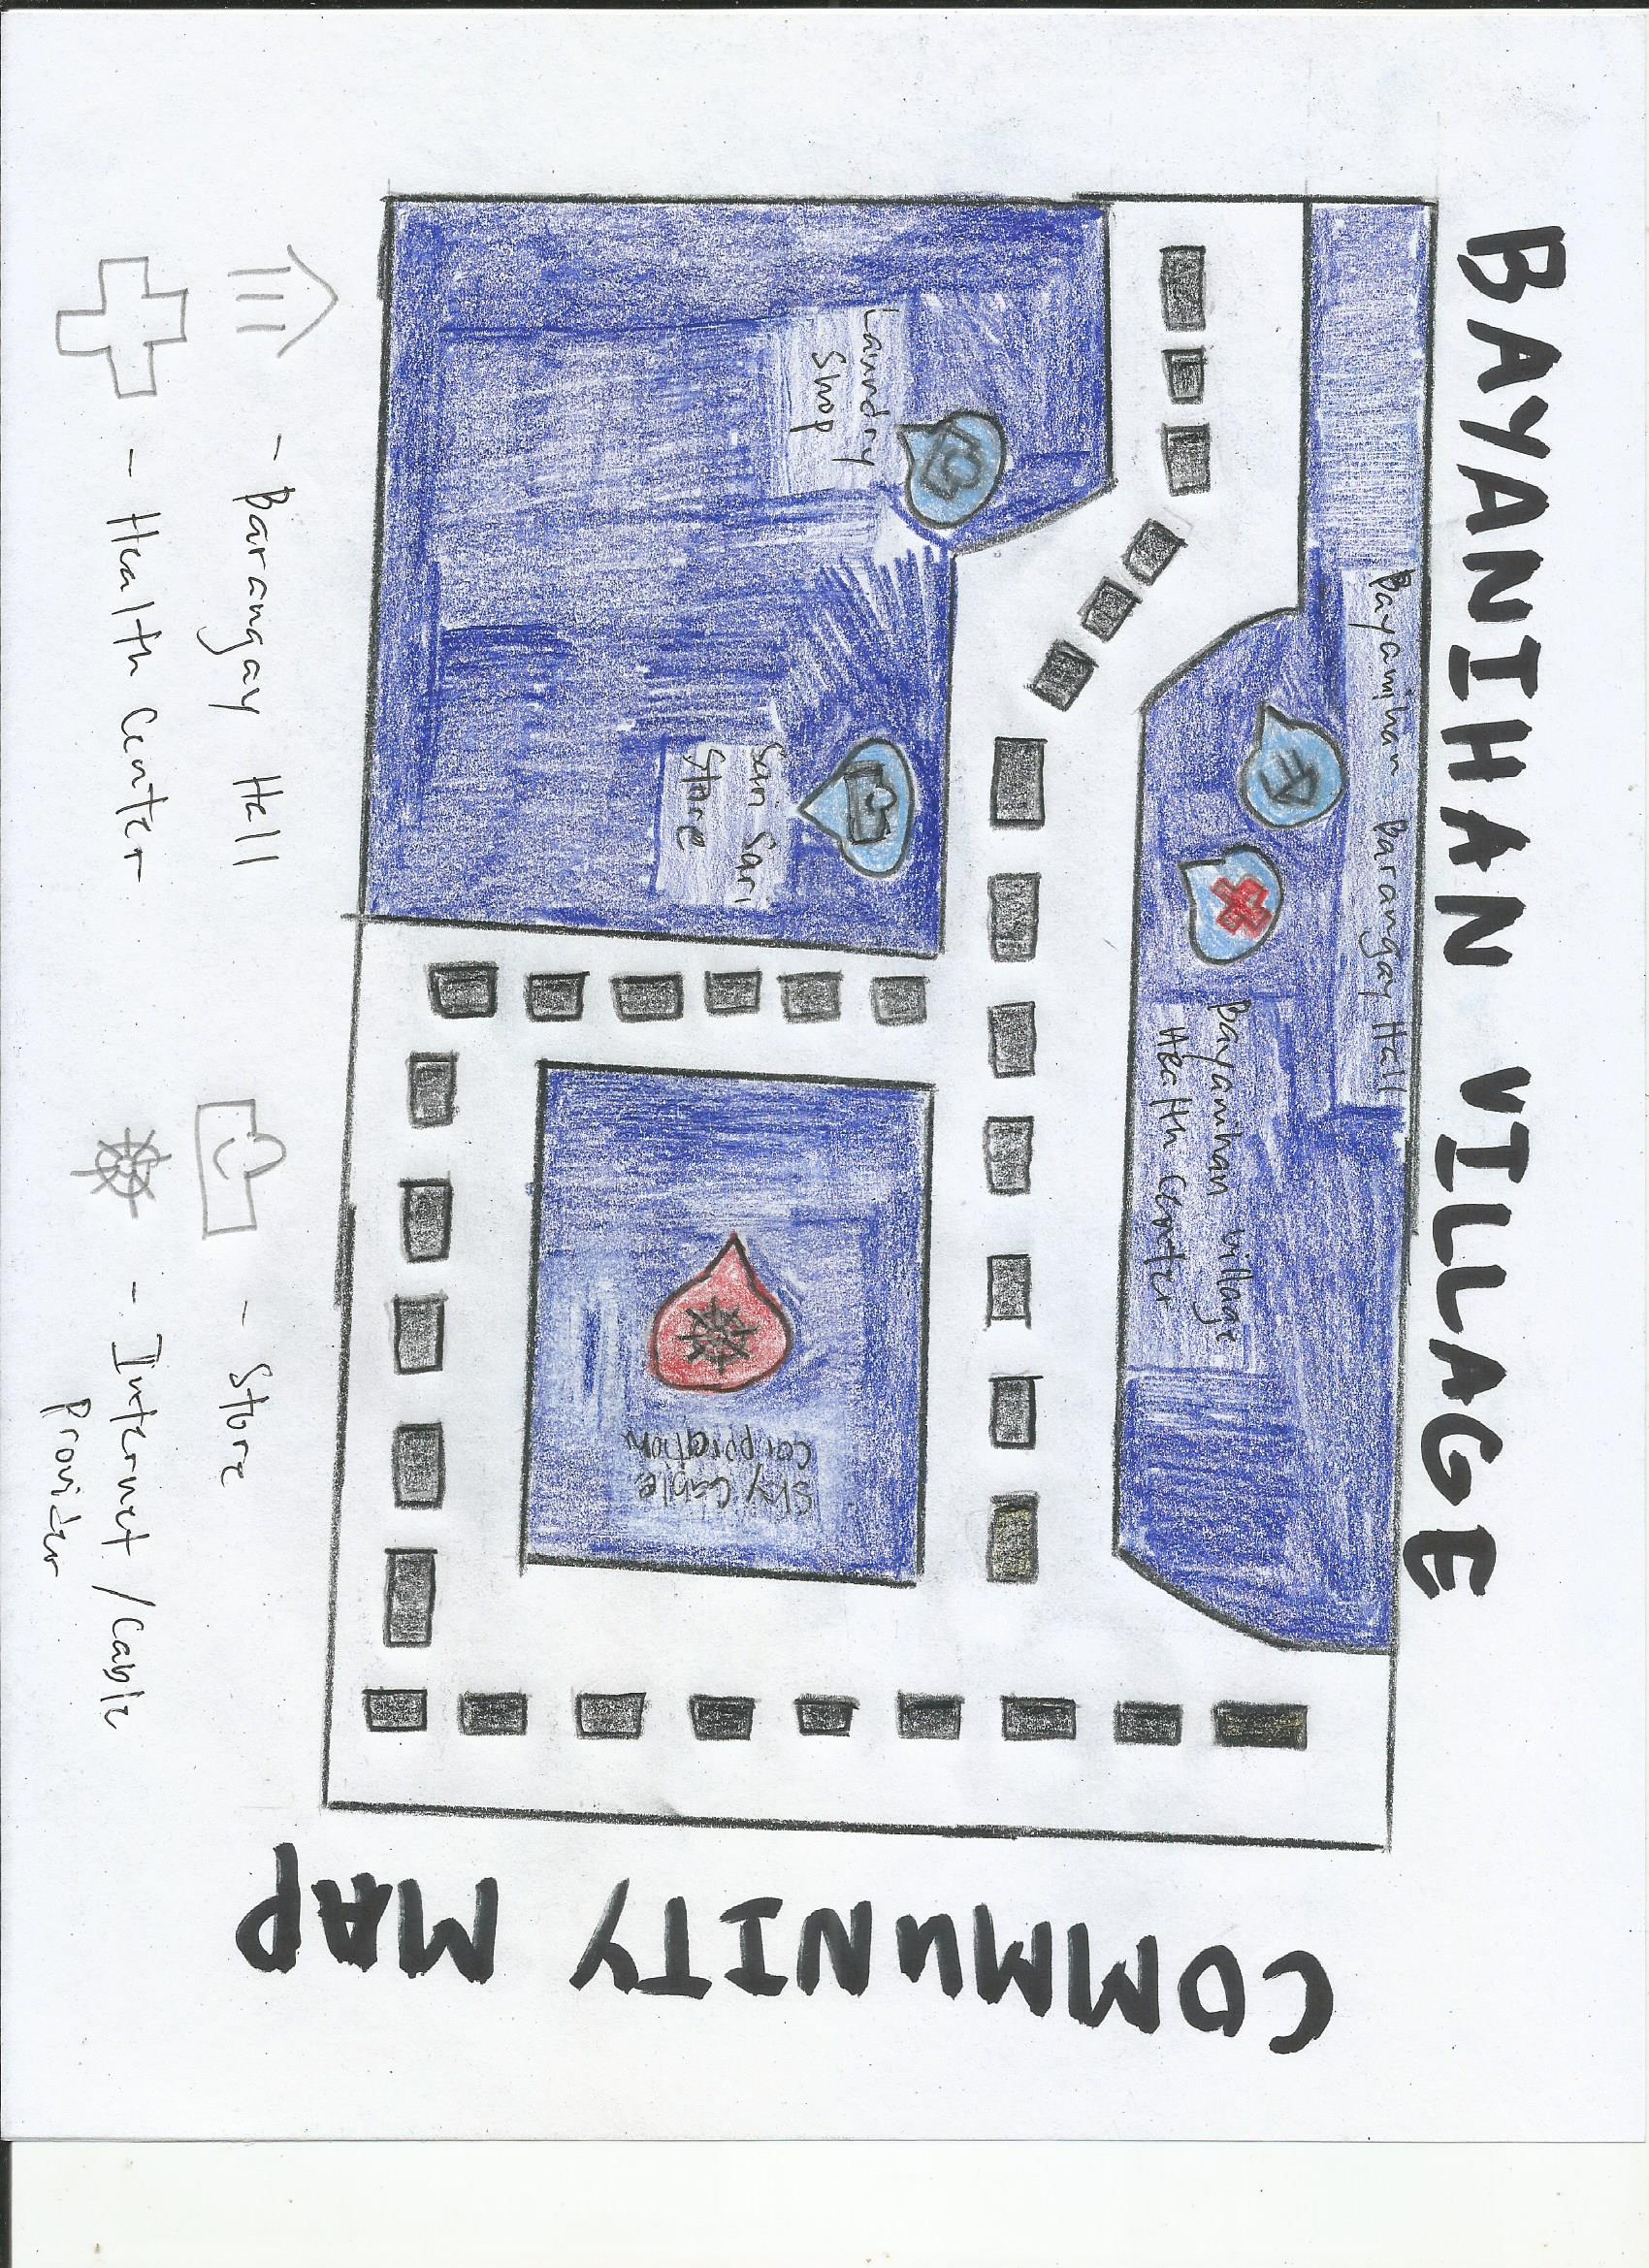 BAYANIHAN VILLAGE
Bayanihan Barangay Hall
Bayanihan Village
Health Center
Laundry
Shop
Sari Sari
Store
Sky Cable
Corporation
COMMUNITY MAP
- Barangay Hall
- Health Center
- Store
- Internet / Cable
Provider